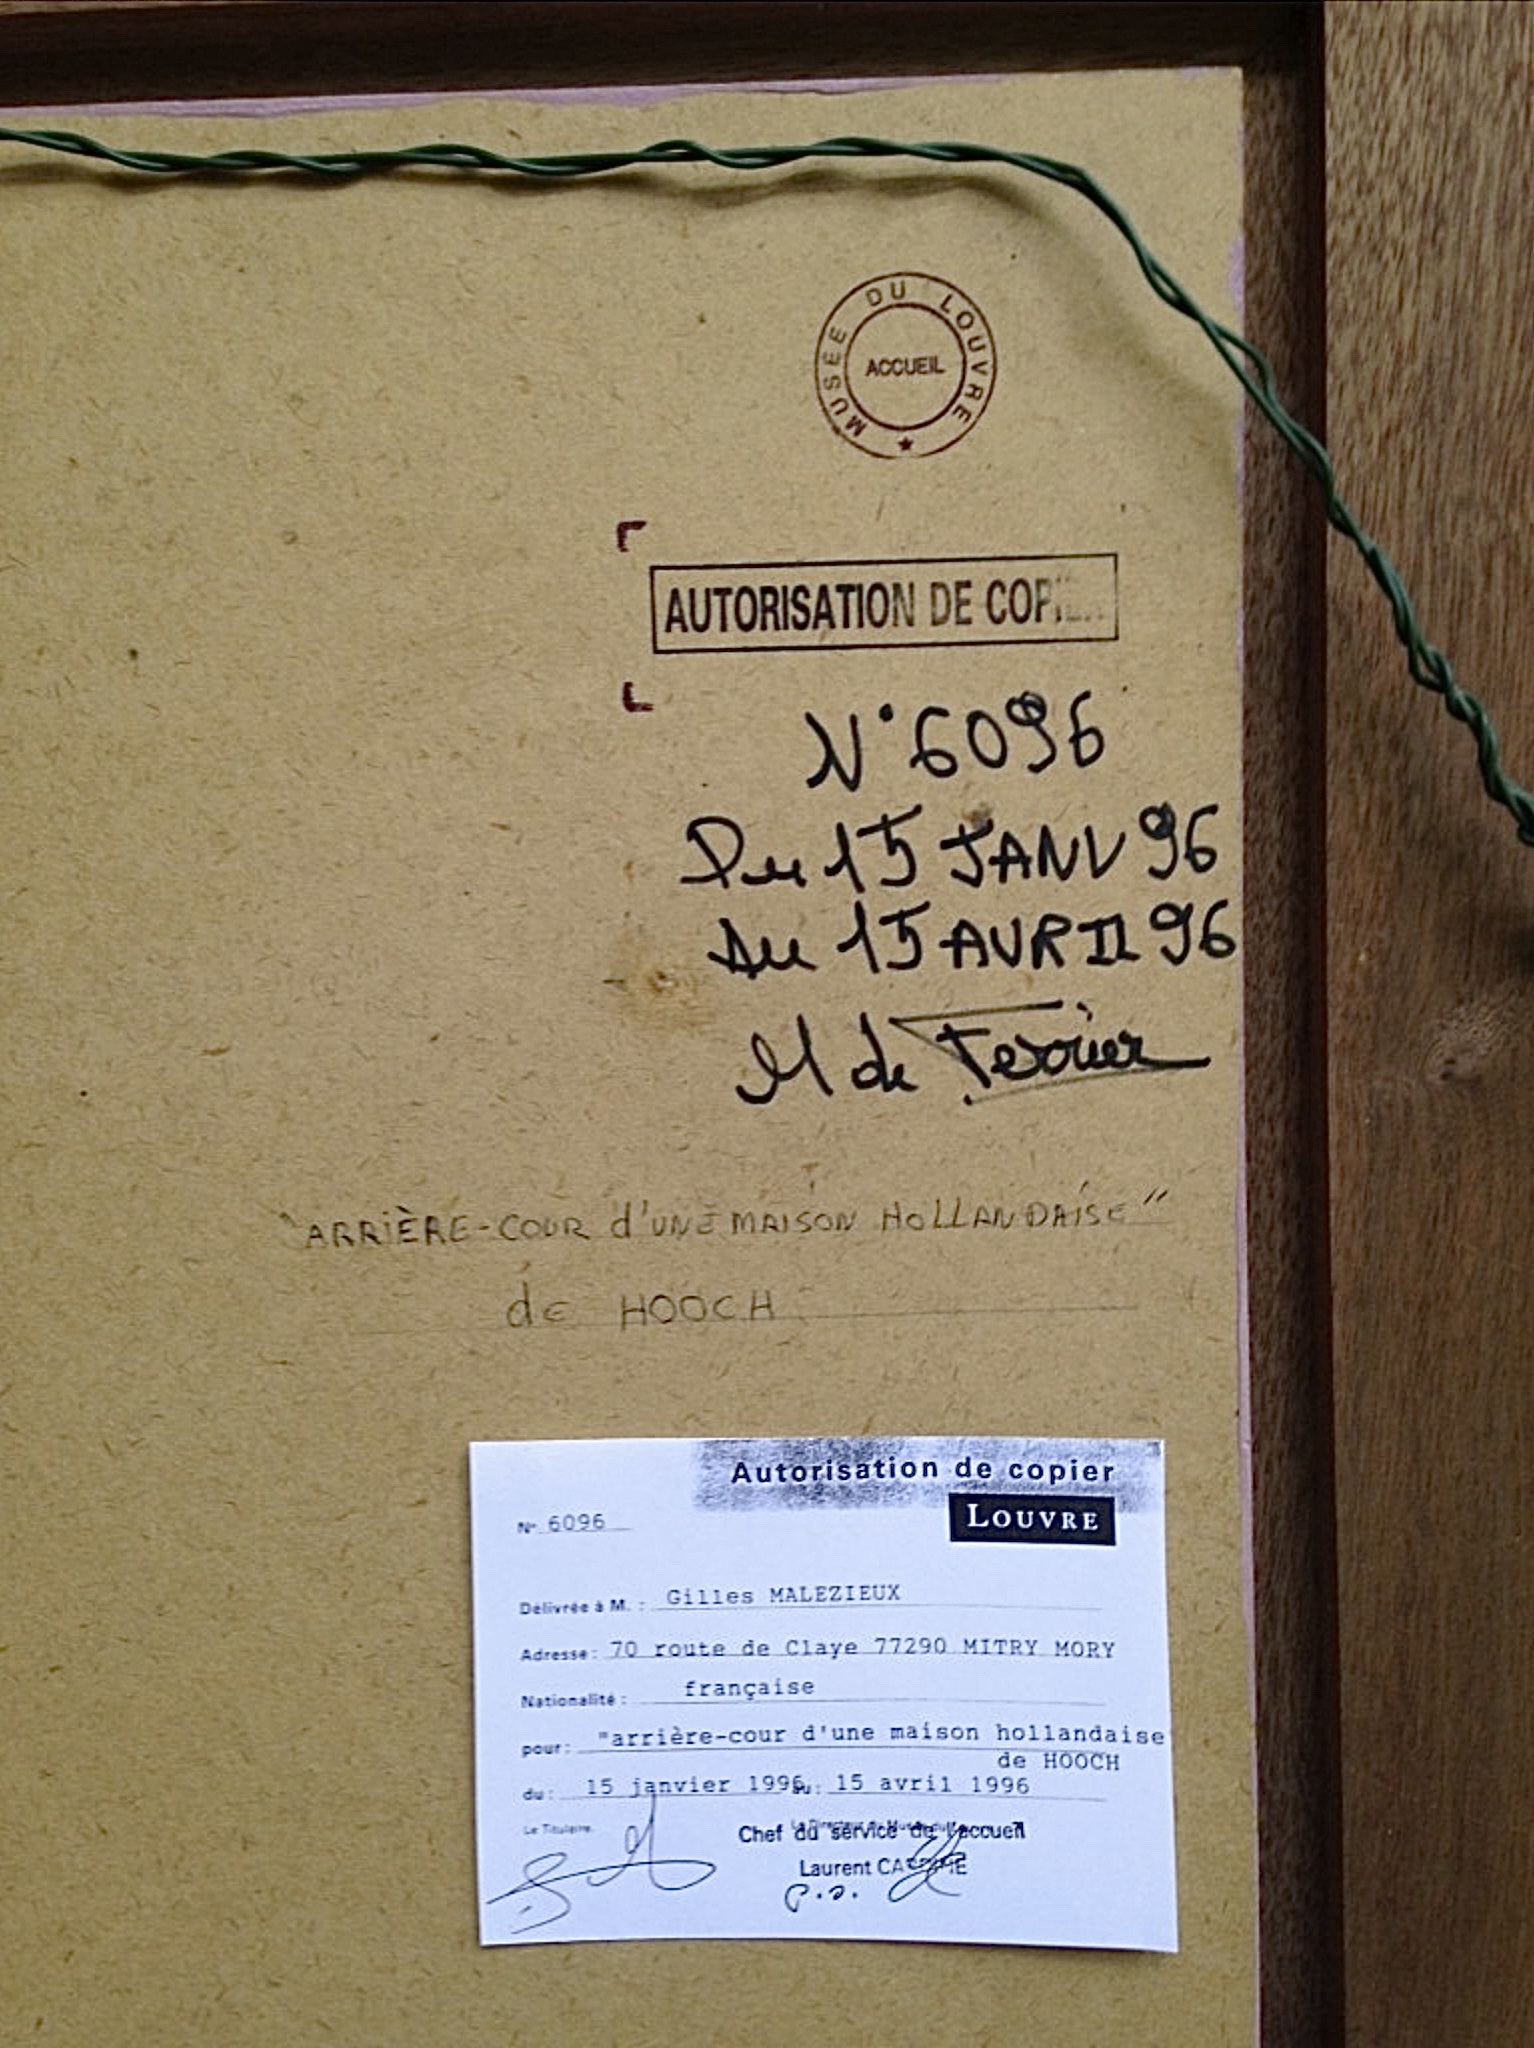 MUSÉE DU LOUVRE
ACCUEIL
AUTORISATION DE COPIER
N° 6096
Du 15 JANV 96
Au 15 AVRIL 96
M de
"ARRIÈRE-COUR d'UNE MAISON HOLLANDAISE"
de HOOCH
Autorisation de copier
LOUVRE
N° 6096
Délivrée à M. : Gilles MALEZIEUX
Adresse : 70 route de Claye 77290 MITRY MORY
Nationalité : française
pour : "arrière-cour d'une maison hollandaise
de HOOCH
du : 15 janvier 1996 au : 15 avril 1996
Le Titulaire,
Chef du service de l'accueil
Laurent
p.o.